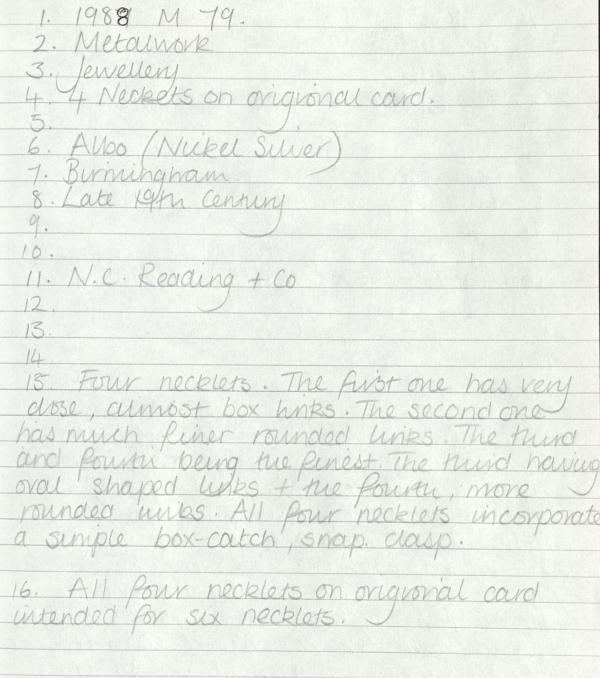 1. 1988 M 79.
2. Metalwork
3. Jewellery
4. 4 Neckets on origrional card.
5.
6. Alboo (Nickel Silver)
7. Birmingham
8. Late 19th Century
9.
10.
11. N.C. Reading + Co
12.
13.
14
15. Four necklets. The first one has very
close, almost box links. The second one
has much finer rounded links. The third
and fourth being the finest. The third having
oval shaped links + the fourth, more
rounded links. All four necklets incorporate
a simple box-catch, snap. clasp.
16. All four necklets on origrional card
intended for six necklets.